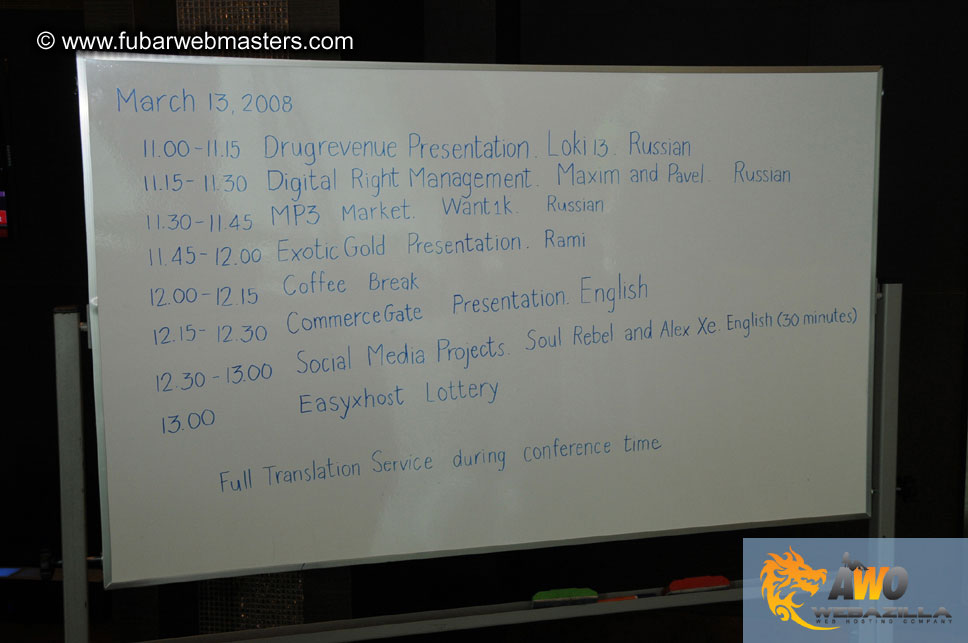 © www.fubarwebmasters.com
March 13, 2008
11.00-11.15 Drugrevenue Presentation. Loki 13. Russian
11.15-11.30 Digital Right Management. Maxim and Pavel. Russian
11.30-11.45 MP3 Market. Want1k. Russian
11.45-12.00 Exotic Gold Presentation. Rami
12.00-12.15 Coffee Break
12.15-12.30 CommerceGate Presentation. English
12.30-13.00 Social Media Projects. Soul Rebel and Alex Xe. English (30 minutes)
13.00 Easyxhost Lottery
Full Translation Service during conference time
AWO
WEBAZILLA
WEB HOSTING COMPANY